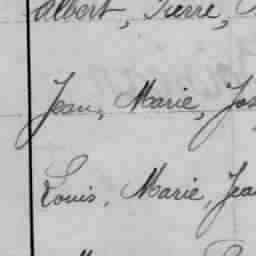 Albert, Pierre,
Jean, Marie, Jos
Louis, Marie, Jea